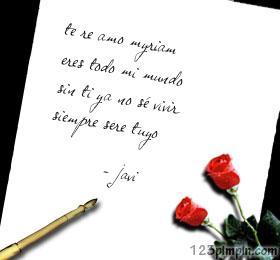 te re amo myriam
eres todo mi mundo
sin ti ya no sé vivir
siempre sere tuyo
- javi
123pimpin.com